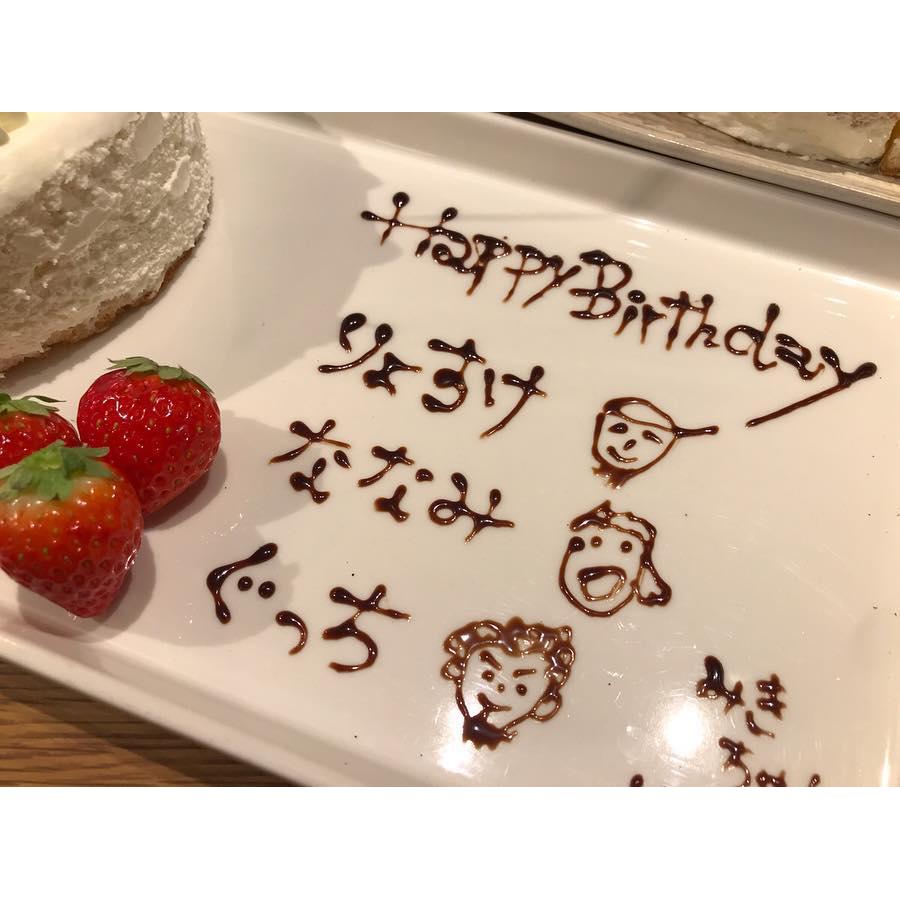 Happy Birthday
りょすけ
ななみ
ぐっち
みき